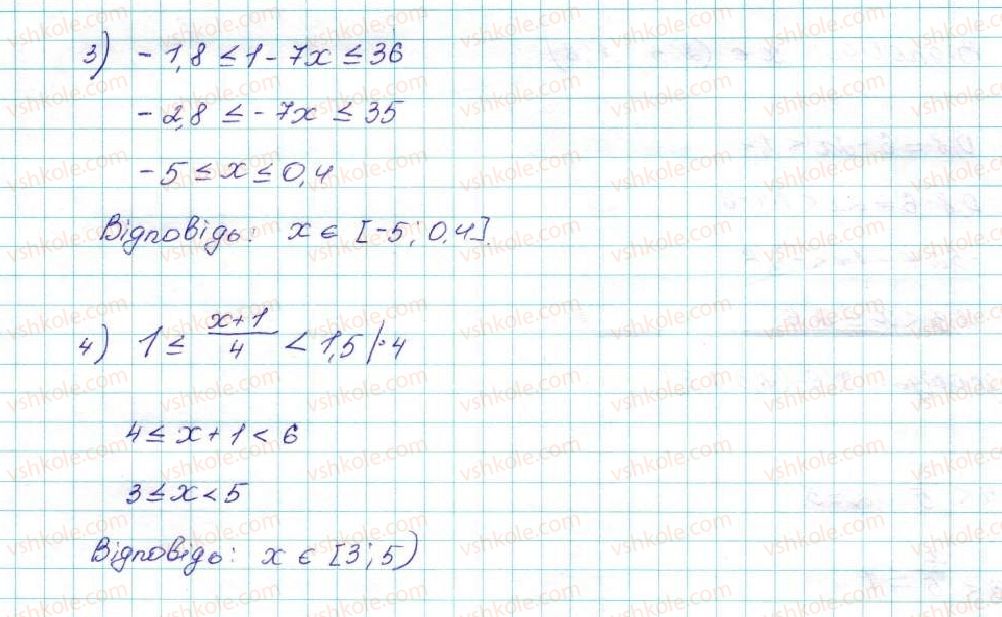 3) -1,8 ≤ 1 - 7x ≤ 36
-2,8 ≤ -7x ≤ 35
-5 ≤ x ≤ 0,4
Відповідь: x ∈ [-5; 0,4].
4) 1 ≤ (x+1)/4 < 1,5 |·4
4 ≤ x + 1 < 6
3 ≤ x < 5
Відповідь: x ∈ [3; 5)
vshkole.com